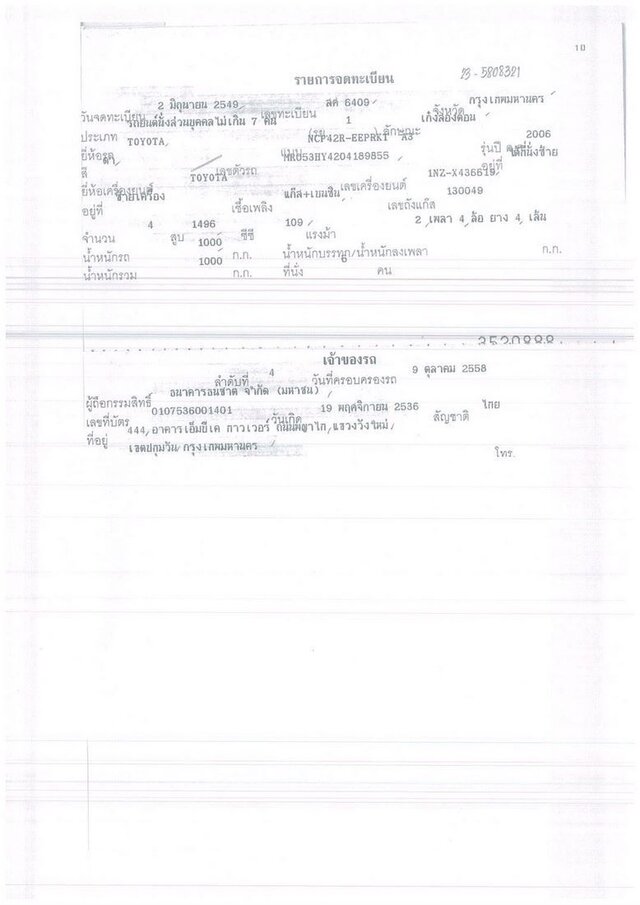 10
รายการจดทะเบียน 23-5808321
วันจดทะเบียน 2 มิถุนายน 2549 เลขทะเบียน 6409 จังหวัด กรุงเทพมหานคร
ประเภท รถยนต์นั่งส่วนบุคคลไม่เกิน 7 คน (รย. 1 ) ลักษณะ เก๋งสองตอน
ยี่ห้อรถ TOYOTA แบบ NCP42R-EEPRKT A3 รุ่นปี ค.ศ. 2006
สี ดำ เลขตัวรถ MR053HY4204189855 อยู่ที่ ใต้ที่นั่งซ้าย
ยี่ห้อเครื่องยนต์ TOYOTA เลขเครื่องยนต์ 1NZ-X436619
อยู่ที่ ซ้ายเครื่อง เชื้อเพลิง แก๊ส+เบนซิน เลขถังแก๊ส 130049
จำนวน 4 สูบ 1496 ซีซี 109 แรงม้า 2 เพลา 4 ล้อ ยาง 4 เส้น
น้ำหนักรถ 1000 ก.ก. น้ำหนักบรรทุก/น้ำหนักลงเพลา ก.ก.
น้ำหนักรวม 1000 ก.ก. ที่นั่ง 6 คน
เจ้าของรถ
ลำดับที่ 4 วันที่ครอบครองรถ 9 ตุลาคม 2558
ผู้ถือกรรมสิทธิ์ ธนาคารธนชาต จำกัด (มหาชน)
เลขที่บัตร 0107536001401 วันเกิด 19 พฤศจิกายน 2536 สัญชาติ ไทย
ที่อยู่ 444, อาคารเอ็มบีเค ทาวเวอร์ ถนนพญาไท, แขวงวังใหม่,
เขตปทุมวัน กรุงเทพมหานคร โทร.